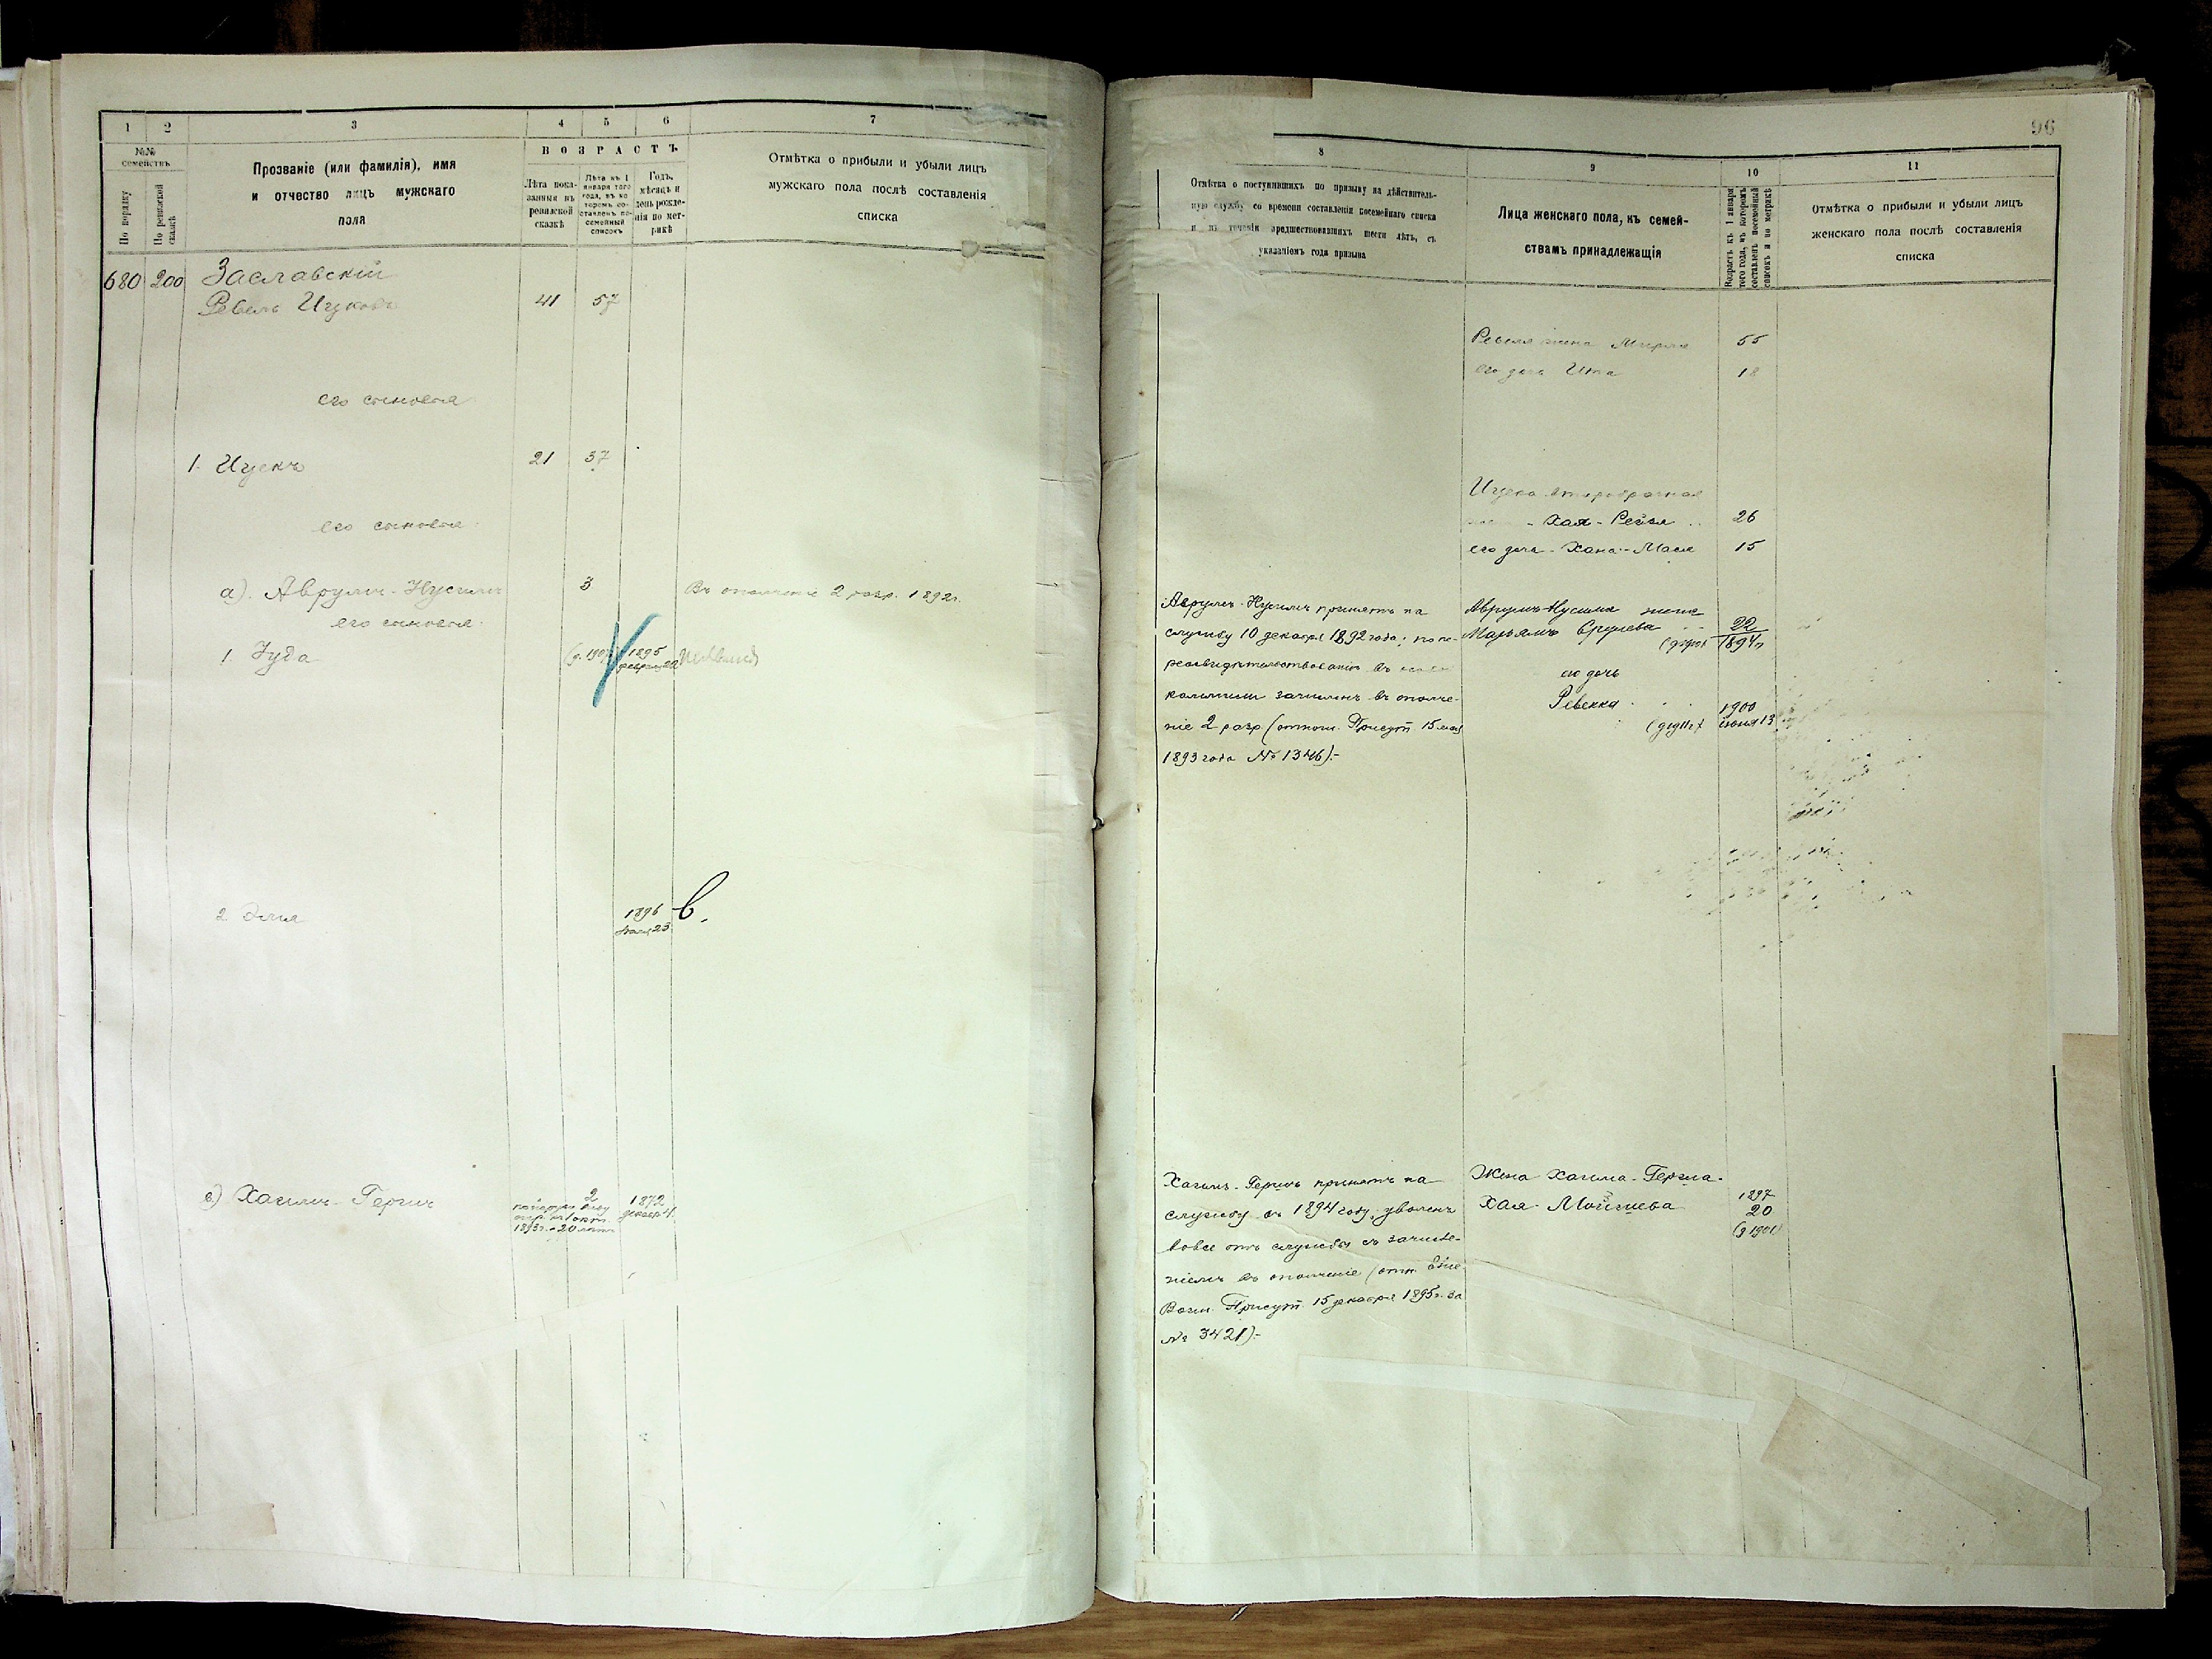 1 2 3 4 5 6 7
№№ семействъ
По порядку
По ревизской сказкѣ
Прозваніе (или фамилія), имя
и отчество лицъ мужскаго
пола
ВОЗРАСТЪ
Лѣта пока-
занныя въ
ревизской
сказкѣ
Лѣта къ 1
января того
года, въ ко
торомъ со-
ставленъ по-
семейный
списокъ
Годъ,
мѣсяцъ и
день рожде-
нія по мет-
рикѣ
Отмѣтка о прибыли и убыли лицъ
мужскаго пола послѣ составленія
списка
680 200 Заславскій
Ревель Ицковъ 41 57
его сыновья
1. Ицекъ 21 37
его сыновья
а). Аврумъ-Нусимъ 3 Въ ополченіе 2 разр. 1892г.
его сыновья
1. Іуда 1895
2 Элия 1896
23
в) Хаимъ-Гершъ 2 1872
декабр 4
1893г. - 20 лѣтъ
96
8 9 10 11
Отмѣтка о поступившихъ по призыву на дѣйствитель-
ную службу со времени составленія посемейнаго списка
и въ теченіи предшествовавшихъ шести лѣтъ, съ
указаніемъ года призыва
Лица женскаго пола, къ семей-
ствамъ принадлежащія
Возрастъ къ 1 января
того года, въ которомъ
составленъ посемейный
списокъ и по метрикѣ
Отмѣтка о прибыли и убыли лицъ
женскаго пола послѣ составленія
списка
Ревеля жена Мирля 55
его дочь Ита 18
Ицека второбрачная
Хая-Рейзя 26
его дочь Хана-Мася 15
Аврумъ-Нусимъ принятъ на
службу 10 декабря 1892 года; по пе-
реосвидѣтельствованіи въ
зачисленъ въ ополче-
ніе 2 разр. (отнош. Присут. 15
1893 года № 1346).-
Аврумъ-Нусима жена
Марьямъ 22
1894г
его дочь
Ревекка 1900
іюня 13
Хаимъ-Гершъ принятъ на
службу въ 1894 году, уволенъ
вовсе отъ службы съ зачисле-
ніемъ въ ополченіе (отн.
Воин. Присут. 15 декабря 1895г. за
№ 3421).-
Жена Хаима-Герша
Хая-Мойшева 1897
20
(д 1901)